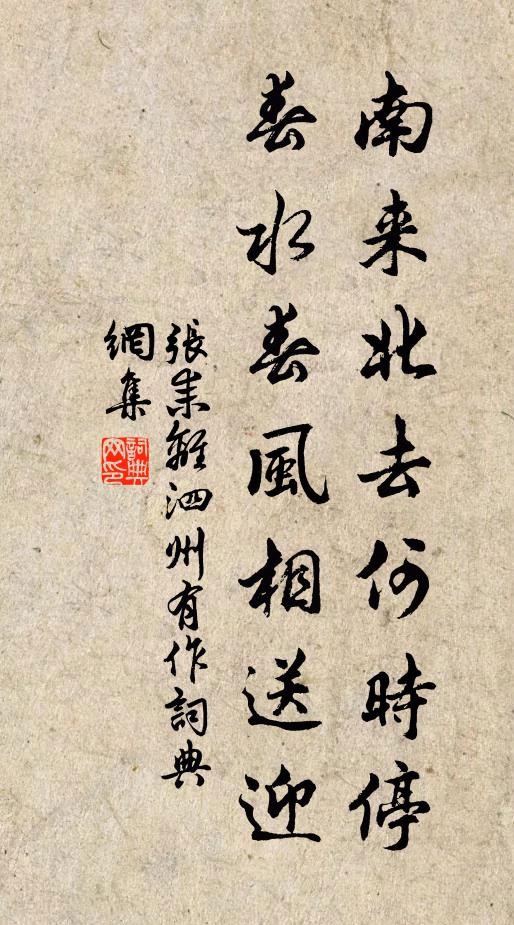 南来北去何時停
春水春風相送迎
張耒離泗州有作詞典
網集
詞典
网印